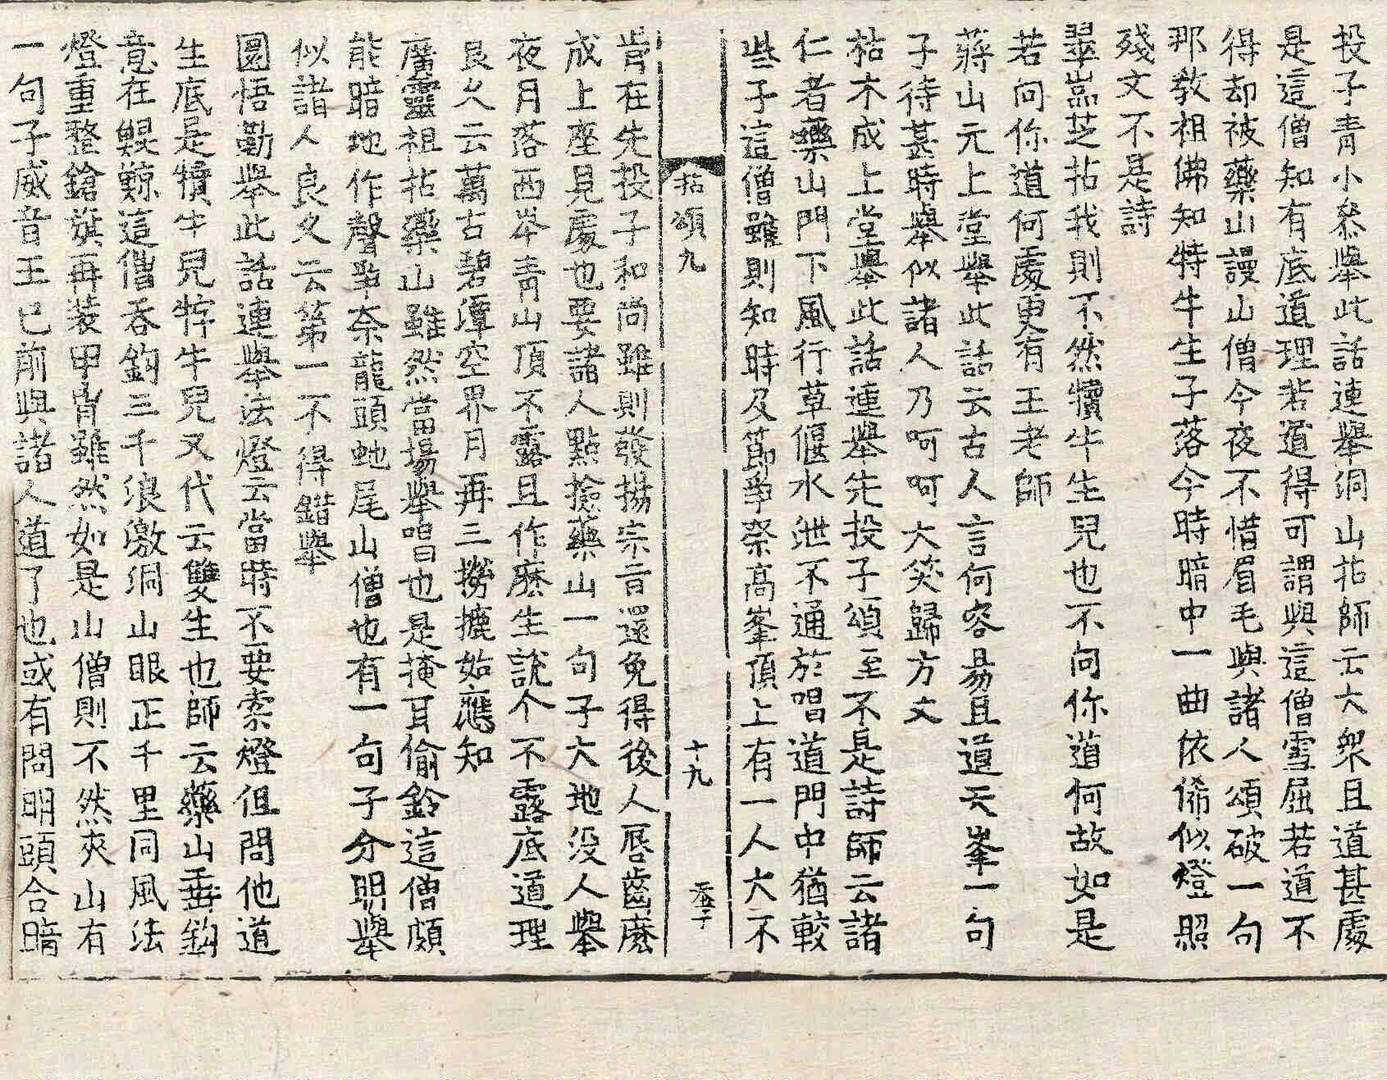 投子青小叅擧此話連擧洞山拈師云大衆且道甚處
是這僧知有底道理若道得可謂與這僧雪屈若道不
得却被藥山謾山僧今夜不惜眉毛與諸人頌破一句
那敎祖佛知特牛生子落今時暗中一曲依俙似燈照
殘文不是詩
翠嵓芝拈我則不然犢牛生兒也不向你道何故如是
若向你道何處更有王老師
蔣山元上堂擧此話云古人言何容昜且道天峯一句
子待甚時擧似諸人乃呵呵大笑歸方丈
枯木成上堂擧此話連擧先投子頌至不是詩師云諸
仁者藥山門下風行草偃水泄不通於唱道門中猶較
些子這僧雖則知時及節爭柰高峯頂上有一人大不
拈頌九
十九
肯在先投子和尚雖則發揚宗旨還免得後人唇齒麽
成上座見處也要諸人點撿藥山一句子大地没人擧
夜月落西岑靑山頂不露且作麽生說个不露底道理
良久云萬古碧潭空界月再三撈摝始應知
廣靈祖拈藥山雖然當場擧唱也是掩耳偷鈴這僧頗
能暗地作聲爭奈龍頭虵尾山僧也有一句子分明擧
似諸人良久云第一不得錯擧
圜悟勤擧此話連擧法燈云當時不要索燈但問他道
生底是犢牛兒牸牛兒又代云雙生也師云藥山垂鉤
意在鯤鯨這僧吞鉤三千浪激洞山眼正千里同風法
燈重整鎗旗再裝甲冑雖然如是山僧則不然夾山有
一句子威音王已前與諸人道了也或有問明頭合暗